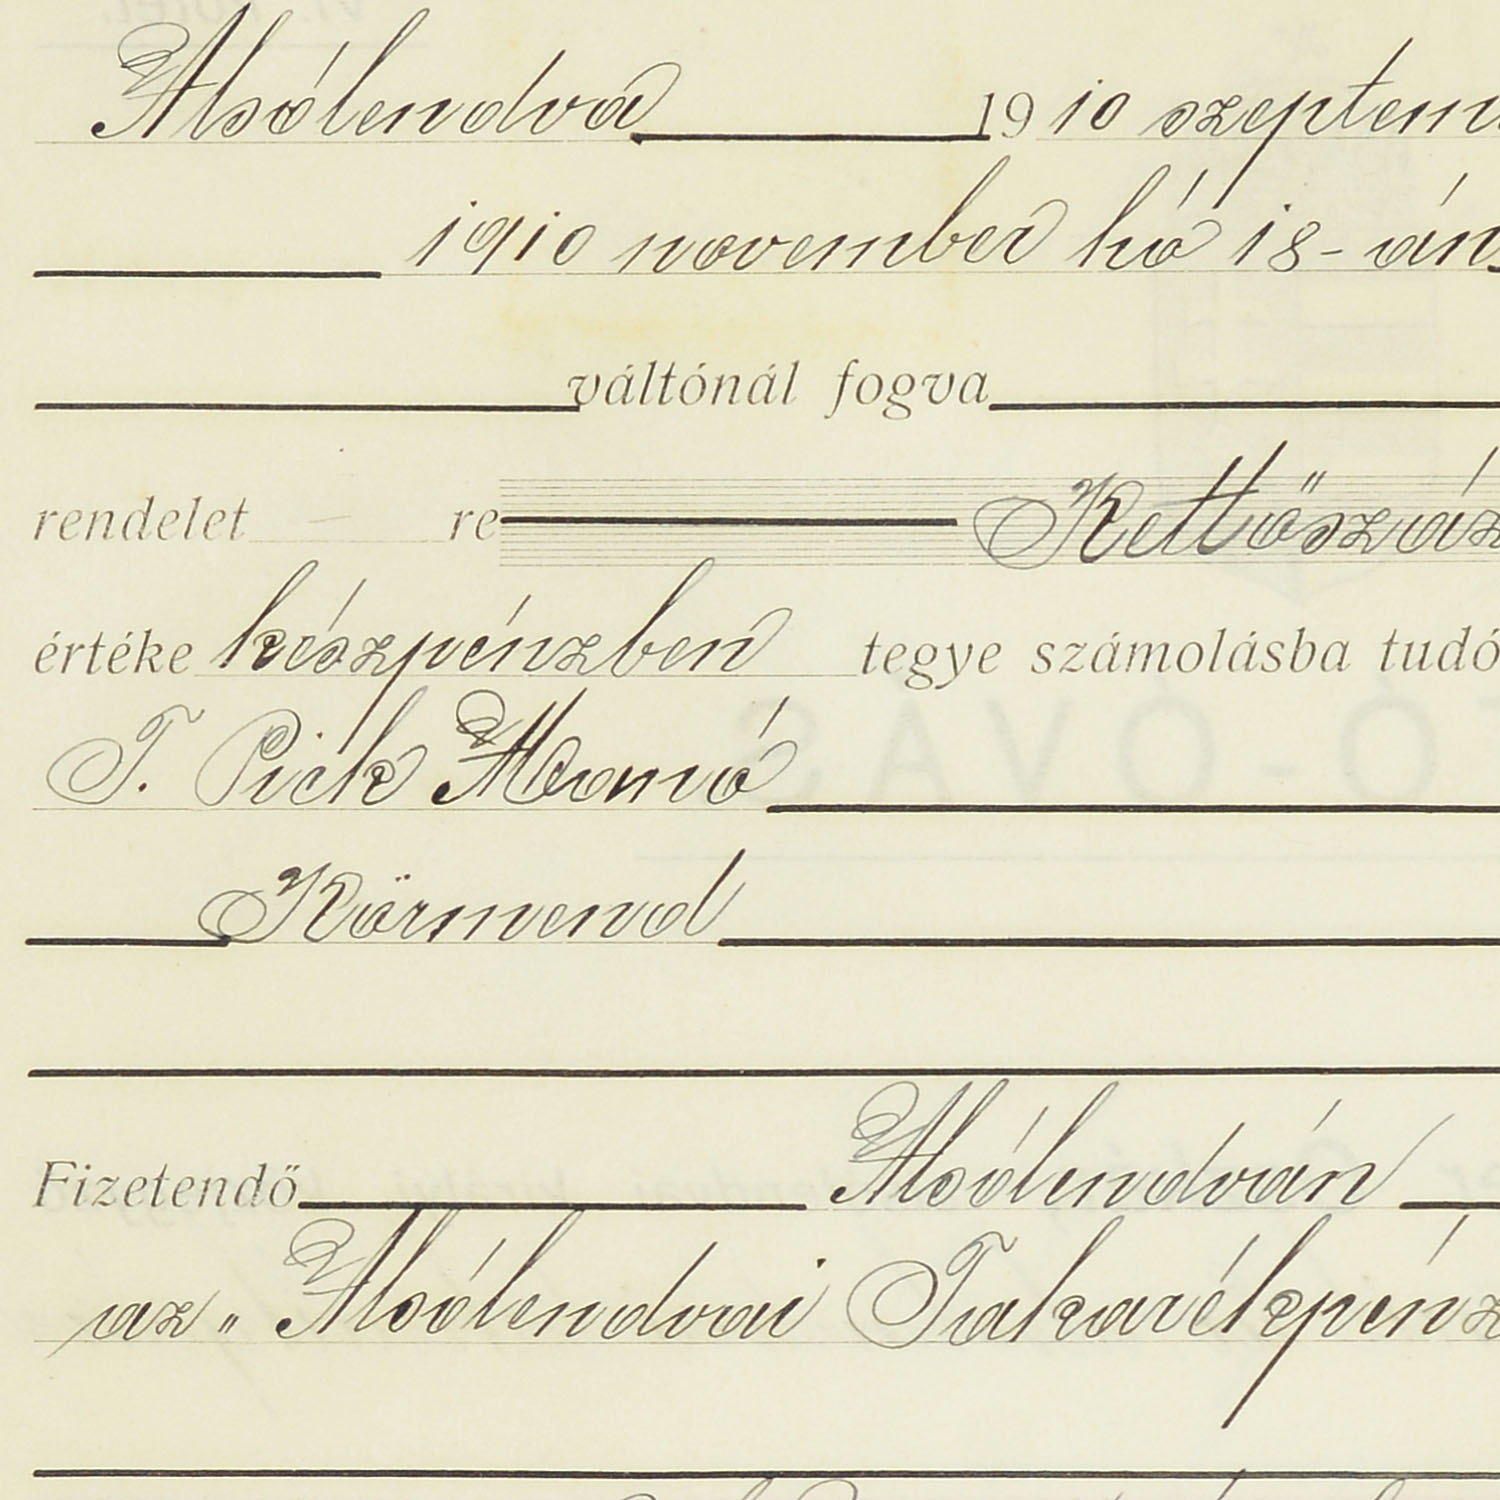 Alsólendva 1910 szeptem
1910 november hó 18-án
váltónál fogva
rendelet re Kettőszáz
értéke készpénzben tegye számolásba tudó
T. Pick
Körmend
Fizetendő Alsólendván
az „Alsólendvai Takarékpénz